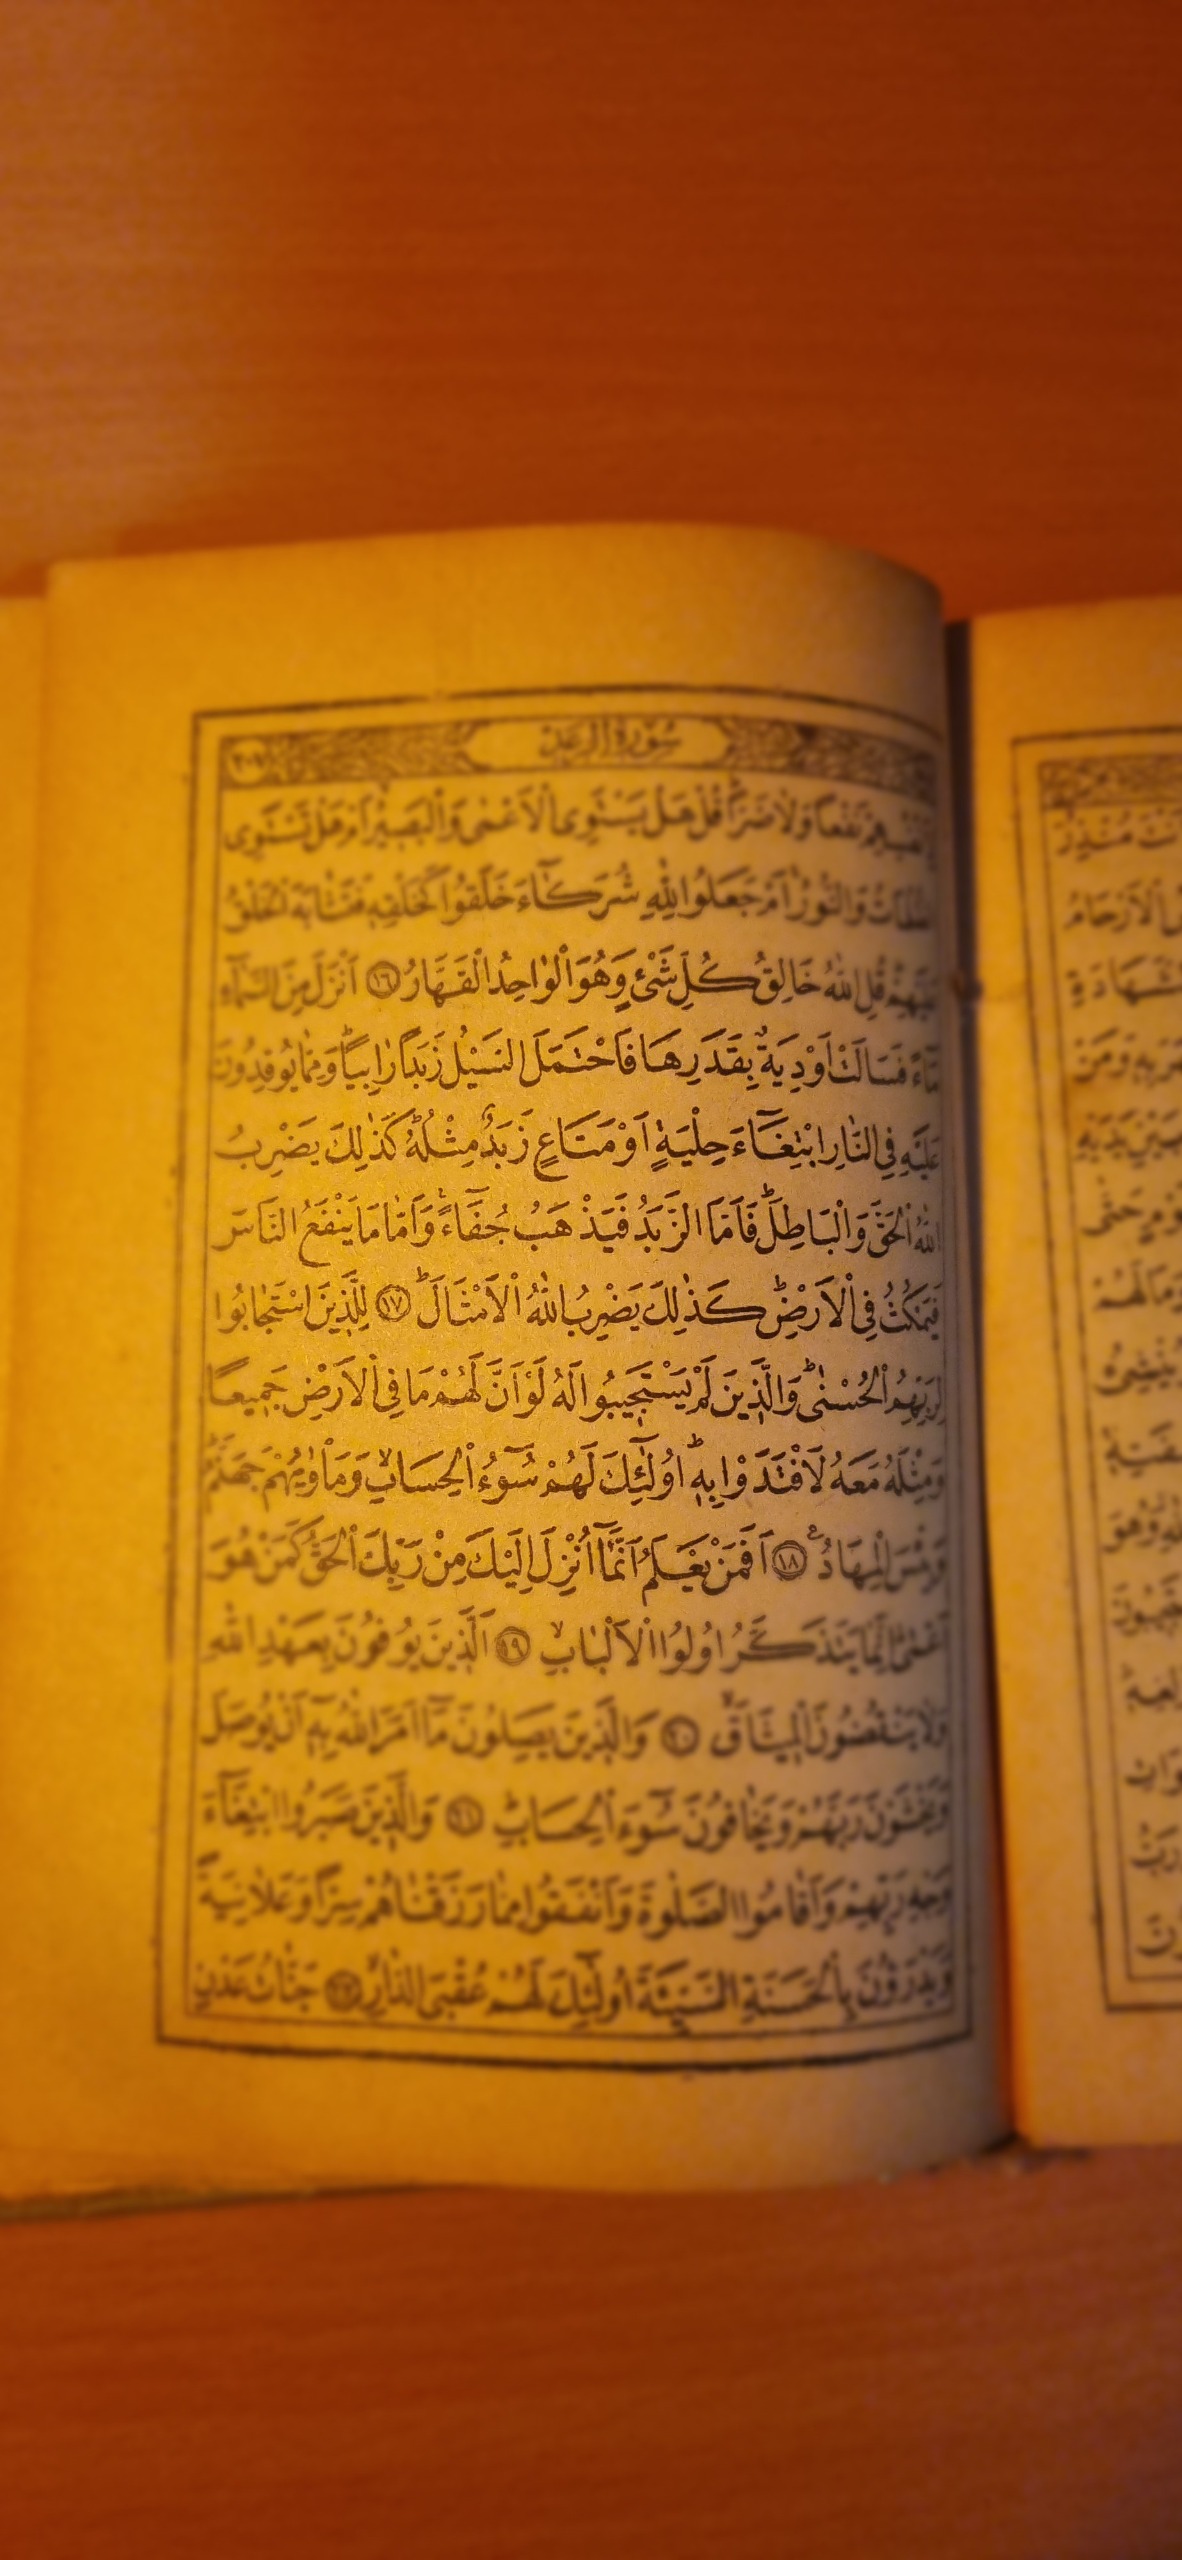 سورة الرعد
نفعا ولا ضرا قل هل يستوى الاعمى والبصير ام هل تستوى
والنور ام جعلوا لله شركاء خلقوا كخلقه فتشابه الخلق
قُلِ اللّٰهُ خَالِقُ كُلِّ شَىْءٍ وَهُوَ الْوَاحِدُ الْقَهَّارُ ﴿١٦﴾ اَنْزَلَ مِنَ السَّمَاۤءِ
مَاۤءً فَسَالَتْ اَوْدِيَةٌ بِقَدَرِهَا فَاحْتَمَلَ السَّيْلُ زَبَدًا رَابِيًاؕ وَمِمَّا يُوقِدُونَ
عَلَيْهِ فِى النَّارِ ابْتِغَاۤءَ حِلْيَةٍ اَوْ مَتَاعٍ زَبَدٌ مِثْلُهُؕ كَذٰلِكَ يَضْرِبُ
اللّٰهُ الْحَقَّ وَالْبَاطِلَؕ فَاَمَّا الزَّبَدُ فَيَذْهَبُ جُفَاۤءًؕ وَاَمَّا مَا يَنْفَعُ النَّاسَ
فَيَمْكُثُ فِى الْاَرْضِؕ كَذٰلِكَ يَضْرِبُ اللّٰهُ الْاَمْثَالَؕ ﴿١٧﴾ لِلَّذِينَ اسْتَجَابُوا
لِرَبِّهِمُ الْحُسْنٰىؕ وَالَّذِينَ لَمْ يَسْتَجِيبُوا لَهُ لَوْ اَنَّ لَهُمْ مَا فِى الْاَرْضِ جَمِيعًا
وَمِثْلَهُ مَعَهُ لَافْتَدَوْا بِهِؕ اُولٰۤئِكَ لَهُمْ سُوۤءُ الْحِسَابِ وَمَأْوٰيهُمْ جَهَنَّمُؕ
وَبِئْسَ الْمِهَادُ ﴿١٨﴾ اَفَمَنْ يَعْلَمُ اَنَّمَاۤ اُنْزِلَ اِلَيْكَ مِنْ رَبِّكَ الْحَقُّ كَمَنْ هُوَ
اَعْمٰىؕ اِنَّمَا يَتَذَكَّرُ اُولُوا الْاَلْبَابِ ﴿١٩﴾ اَلَّذِينَ يُوفُونَ بِعَهْدِ اللّٰهِ
وَلَا يَنْقُضُونَ الْمِيثَاقَ ﴿٢٠﴾ وَالَّذِينَ يَصِلُونَ مَاۤ اَمَرَ اللّٰهُ بِهِۤ اَنْ يُوصَلَ
وَيَخْشَوْنَ رَبَّهُمْ وَيَخَافُونَ سُوۤءَ الْحِسَابِ ﴿٢١﴾ وَالَّذِينَ صَبَرُوا ابْتِغَاۤءَ
وَجْهِ رَبِّهِمْ وَاَقَامُوا الصَّلٰوةَ وَاَنْفَقُوا مِمَّا رَزَقْنَاهُمْ سِرًّا وَعَلَانِيَةً
وَيَدْرَؤُنَ بِالْحَسَنَةِ السَّيِّئَةَ اُولٰۤئِكَ لَهُمْ عُقْبَى الدَّارِ ﴿٢٢﴾ جَنَّاتُ عَدْنٍ